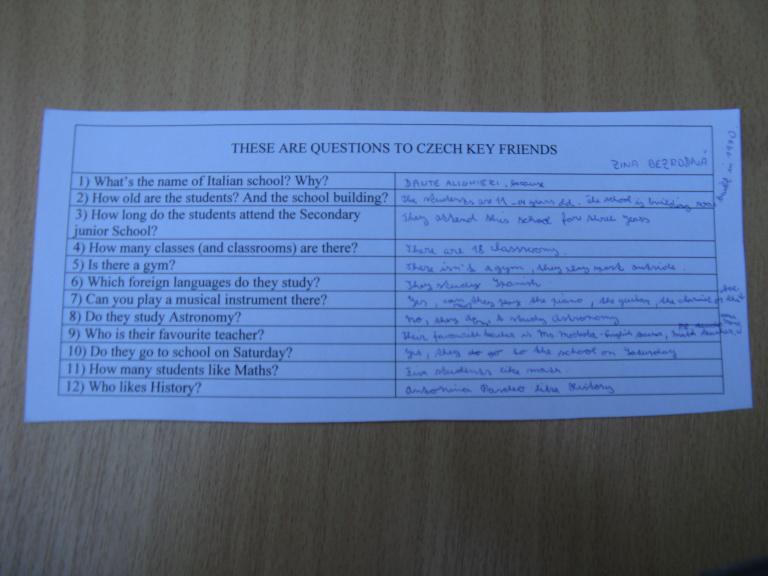 THESE ARE QUESTIONS TO CZECH KEY FRIENDS
ZINA BEZRODNÁ
1) What's the name of Italian school? Why? DANTE ALIGHIERI,
2) How old are the students? And the school building? The students are 11 - 14 years old. The school is building was built in 1970.
3) How long do the students attend the Secondary They attend this school for three years
junior School?
4) How many classes (and classrooms) are there? There are 18 classrooms.
5) Is there a gym? There isn't a gym, they play sport outside.
6) Which foreign languages do they study? They study Spanish
7) Can you play a musical instrument there? Yes, they play the piano, the guitar, the
8) Do they study Astronomy? No, they study Astronomy
9) Who is their favourite teacher? Their favourite teacher is Ms
10) Do they go to school on Saturday? Yes, they do go to the school on Saturday
11) How many students like Maths? students like math.
12) Who likes History? Antonina like History